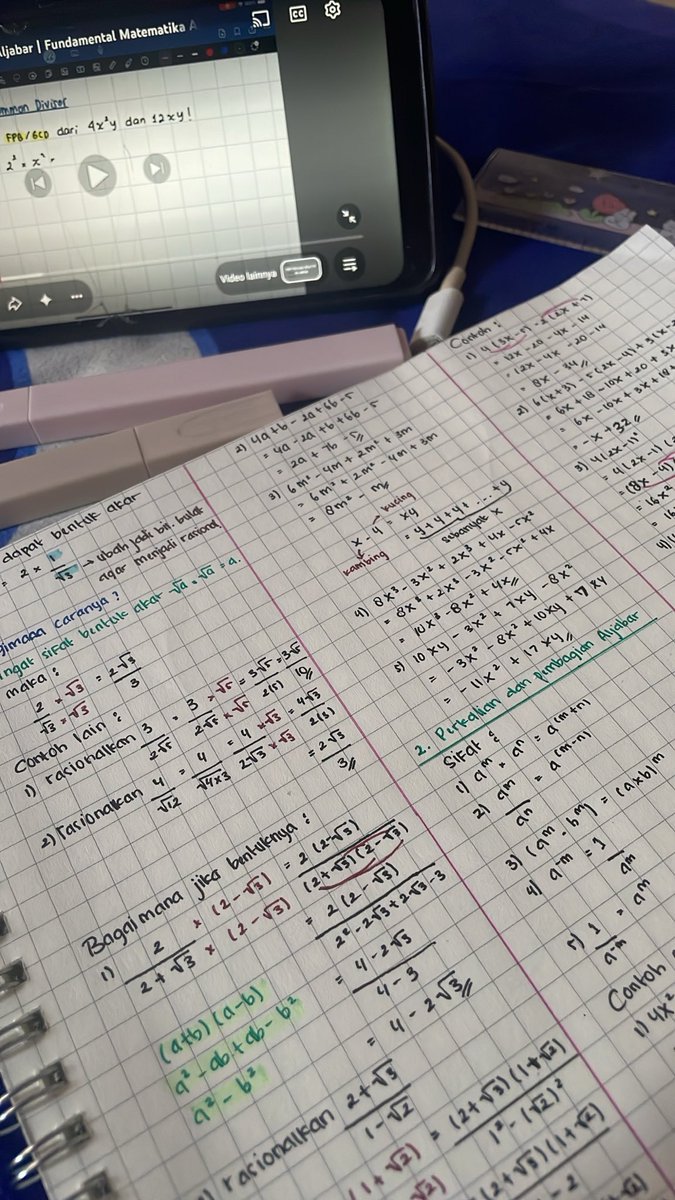 Aljabar | Fundamental Matematika A
CC
Common Divisor
FPB/GCD dari 4x²y dan 12xy!
2² = x² .
Video lainnya
dapat bentuk akar
= 2 × 1/√3 → ubah jadi bil. bulat
agar menjadi rasional
caranya?
ingat sifat bentuk akar √a × √a = a.
maka :
2/√3 × √3/√3 = 2√3/3
Contoh lain :
1) rasionalkan 3/2√5 = 3/2√5 × √5/√5 = 3√5/2(5) = 3√5/10//
2) rasionalkan 4/√12 = 4/√4×3 = 4/2√3 × √3/√3 = 4√3/2(3)
= 2√3/3//
Bagaimana jika bentuknya :
1) 2/2+√3 × (2-√3)/(2-√3) = 2(2-√3)/(2+√3)(2-√3)
= 2(2-√3)/2²-2√3+2√3-3
= 4-2√3/4-3
= 4-2√3//
(a+b)(a-b)
a²-ab+ab-b²
a²-b²
rasionalkan 2+√3/1-√2 = (2+√3)(1+√2)/1²-(√2)²
(1+√2)
√2)
(2+√3)(1+√2)
2) 4a+b-2a+6b-5
= 4a-2a+b+6b-5
= 2a+7b-5//
3) 6m²-4m+2m²+3m
= 6m²+2m²-4m+3m
= 8m²-m//
kucing
x-y = xy
kambing
= y+y+y+...+y
sebanyak x
4) 8x³-3x²+2x³+4x-5x²
= 8x³+2x³-3x²-5x²+4x
= 10x³-8x²+4x//
5) 10xy-3x²+7xy-8x²
= -3x²-8x²+10xy+7xy
= -11x²+17xy//
2. Perkalian dan pembagian Aljabar
Sifat :
1) aᵐ . aⁿ = a⁽ᵐ⁺ⁿ⁾
2) aᵐ/aⁿ = a⁽ᵐ⁻ⁿ⁾
3) (aᵐ . bᵐ) = (a×b)ᵐ
4) a⁻ᵐ = 1/aᵐ
5) 1/a⁻ᵐ = aᵐ
Contoh
1) 4x²
Contoh :
1) 4(3x-5)-2(2x+7)
= 12x-20-4x-14
= 12x-4x-20-14
= 8x-34//
2) 6(x+3)-5(2x-4)+3(x-
= 6x+18-10x+20+3x
= 6x-10x+3x+18+
= -x+32//
3) 4(2x-1)²
= 4(2x-1)(
= (8x-4)
= 16x²
= 16
4)